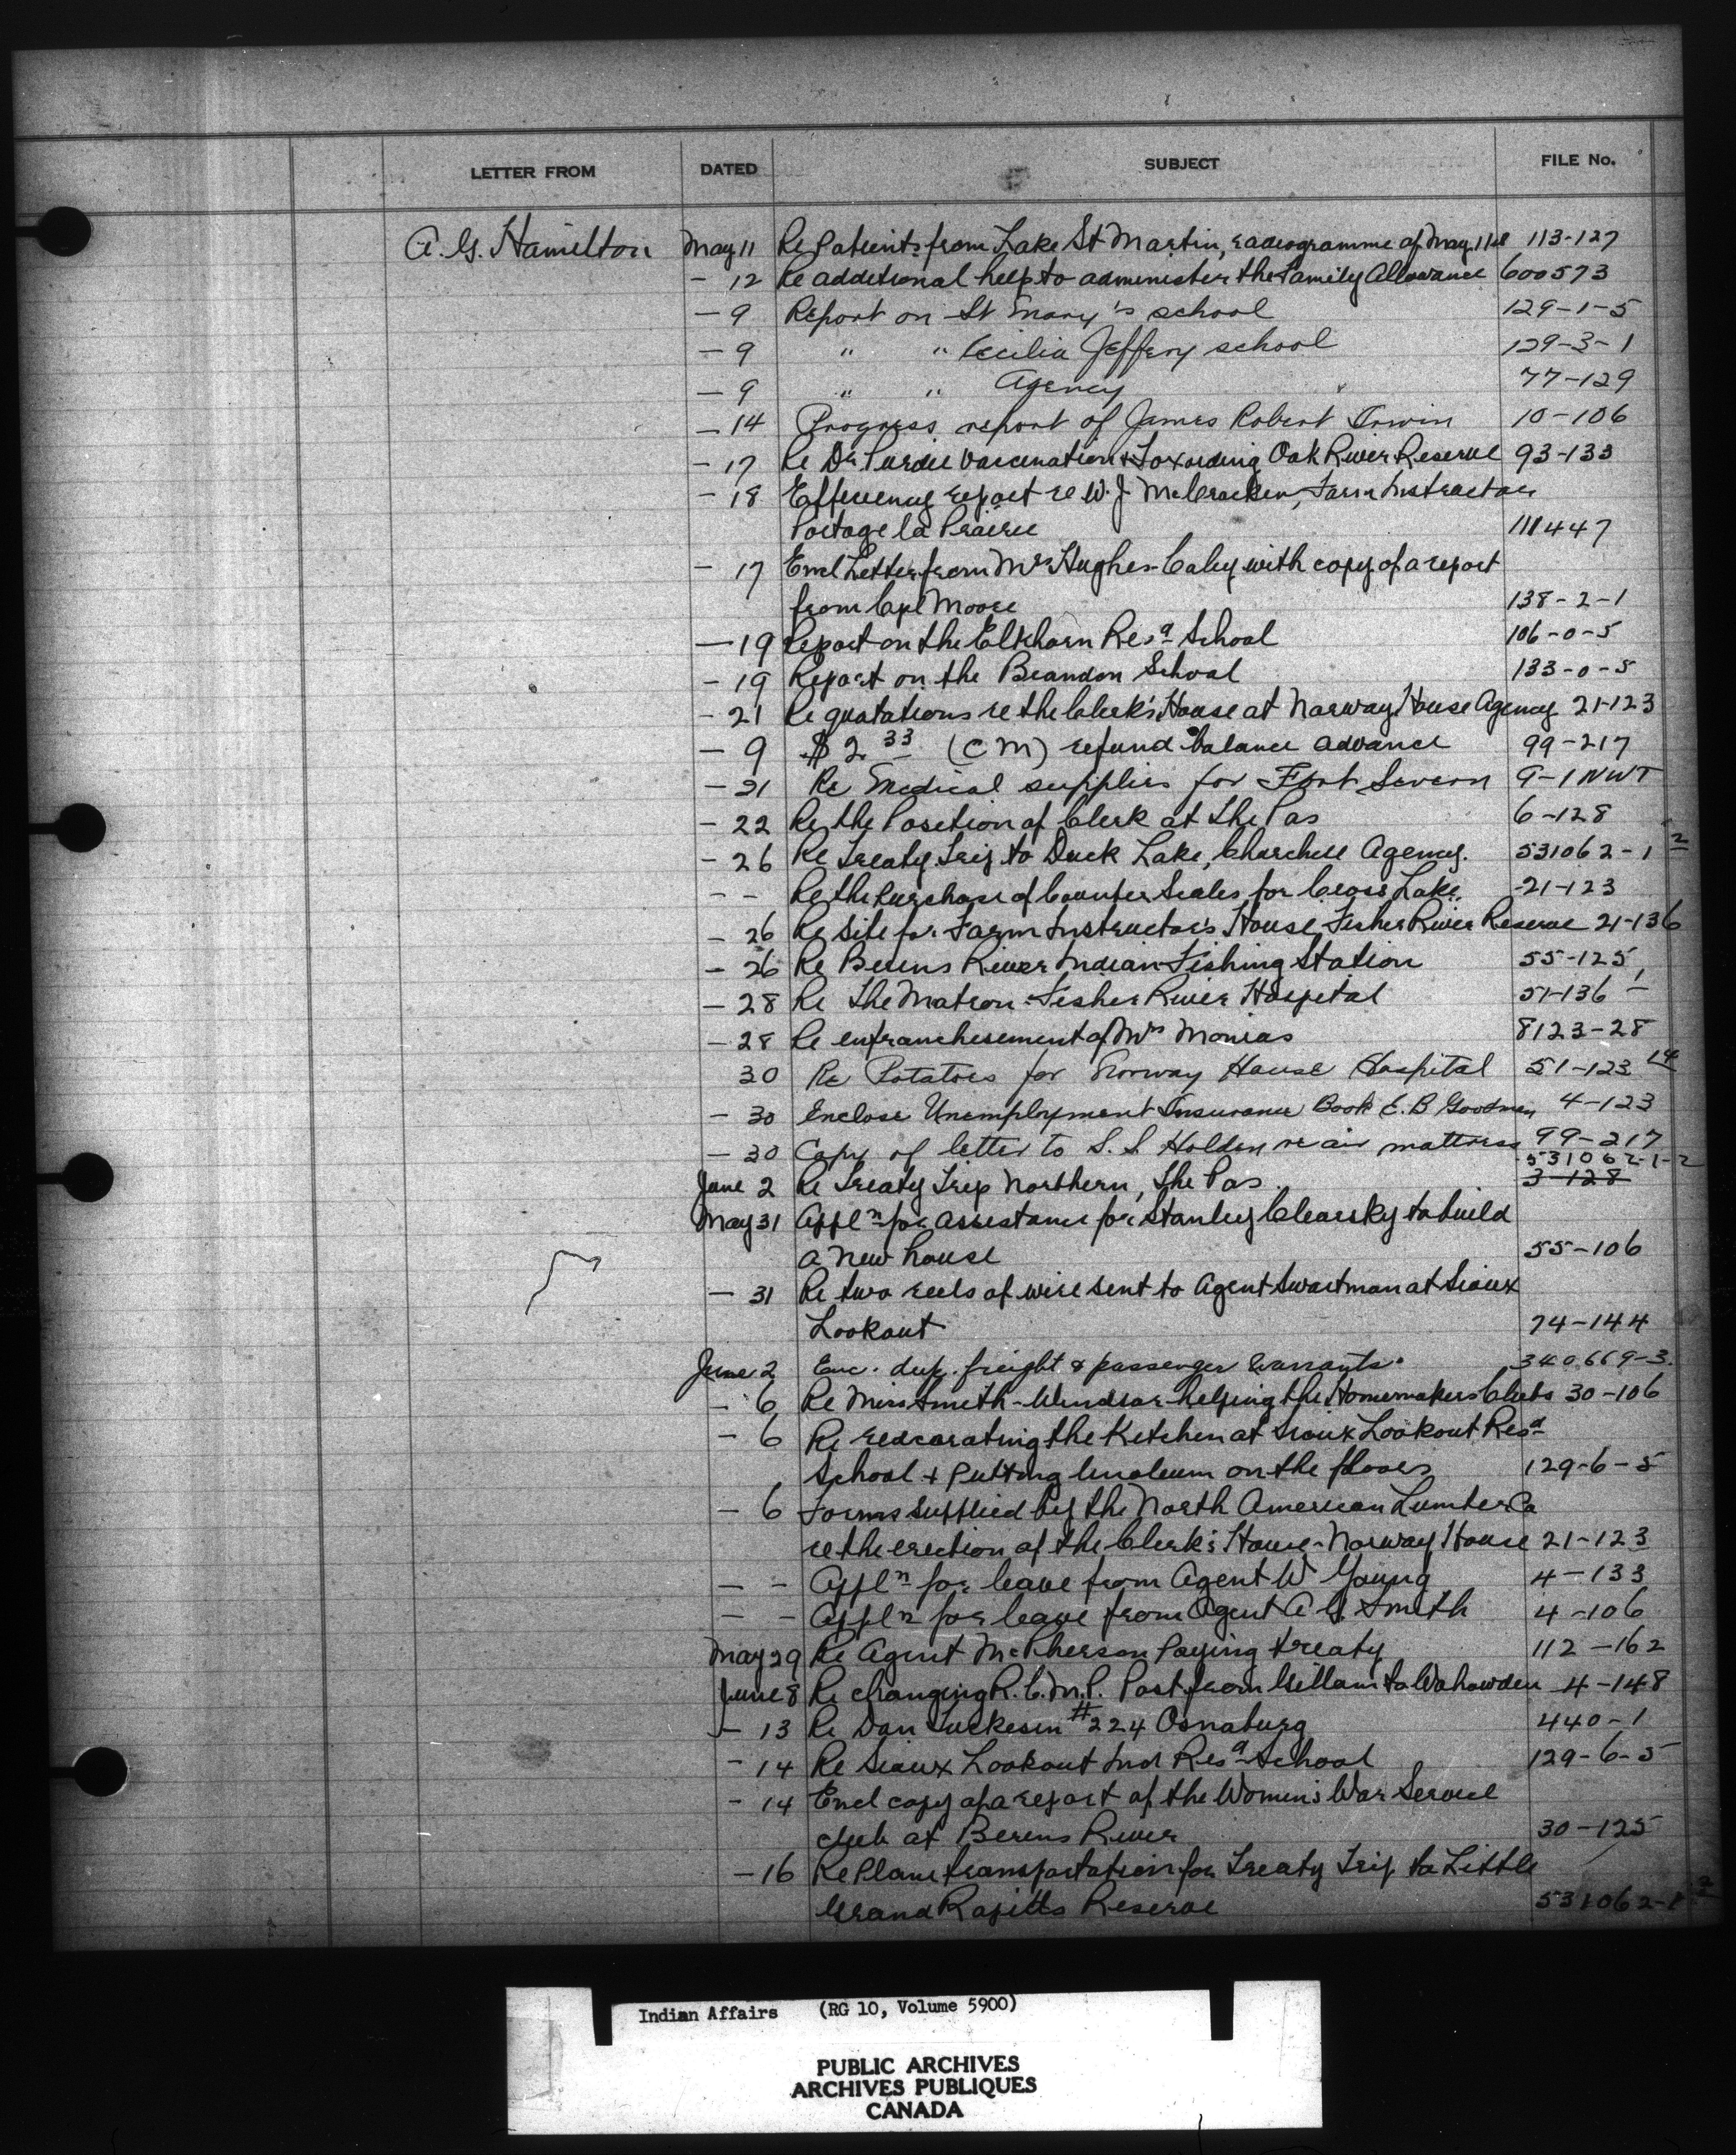 LETTER FROM DATED SUBJECT FILE No.
A. G. Hamilton May 11 Re Patients from Lake St Martin, radiogramme of May 11th 113-127
- 12 Re additional help to administer the Family Allowance 600573
- 9 Report on St Mary's school 129-1-5
- 9 " " Cecilia Jeffery school 129-3-1
- 9 " " Agency 77-129
- 14 Progress report of James Robert Irwin 10-106
- 17 Re Dr Purdie Vaccination & Toxoiding Oak River Reserve 93-133
- 18 Efficiency report re W. J. McCracken, Farm Instructor
Portage la Prairie 111447
- 17 Encl Letter from Mr Hughes-Caley with copy of a report
from Cpl Moore 138-2-1
- 19 Report on the Elkhorn Resd School 106-0-5
- 19 Report on the Brandon School 133-0-5
- 21 Re quotations re the Clerk's House at Norway House Agency 21-123
- 9 $2.33 (CM) refund balance advance 99-217
- 21 Re Medical supplies for Fort Severn 9-1 NWT
- 22 Re the Position of Clerk at The Pas 6-128
- 26 Re Treaty Trip to Duck Lake, Churchill Agency. 531062-1 2
- - Re the Purchase of Counter Scales for Cross Lake. 21-123
- 26 Re Site for Farm Instructor's House Fisher River Reserve 21-136
- 26 Re Berens River Indian Fishing Station 55-125
- 28 Re The Matron - Fisher River Hospital 51-136
- 28 Re enfranchisement of Mrs Monias 8123-28
30 Re Potatoes for Norway House Hospital 51-123 14
- 30 Enclose Unemployment Insurance Book E. B Goodman 4-123
- 30 Copy of letter to S. S. Holden re air mattress 99-217
531062-1-2
June 2 Re Treaty Trip Northern, The Pas 3-128
May 31 Appln for assistance for Stanley Clearsky to build
a new house 55-106
- 31 Re two reels of wire sent to Agent Swartman at Sioux
Lookout 74-144
June 2 Enc. dup. freight & passenger warrants. 340669-3.
- 6 Re Miss Smith-Windsor helping the Homemakers Clubs 30-106
- 6 Re redecorating the Kitchen at Sioux Lookout Resd
School & Putting linoleum on the floors 129-6-5
- 6 Forms supplied by the North American Lumber Co
re the erection of the Clerk's House - Norway House 21-123
- - Appln for leave from Agent W Young 4-133
- - Appln for leave from Agent A G. Smith 4-106
May 29 Re Agent McPherson Paying treaty 112-162
June 8 Re changing R.C.M.P. Post from Gillam to Wabowden 4-148
- 13 Re Dan #224 Osnaburg 440-1
- 14 Re Sioux Lookout Ind Resd School 129-6-5
- 14 Encl copy of a report of the Women's War Service
club at Berens River 30-125
- 16 Re Plane transportation for Treaty Trip to Little
Grand Rapids Reserve 531062-1 2
Indian Affairs (RG 10, Volume 5900)
PUBLIC ARCHIVES
ARCHIVES PUBLIQUES
CANADA